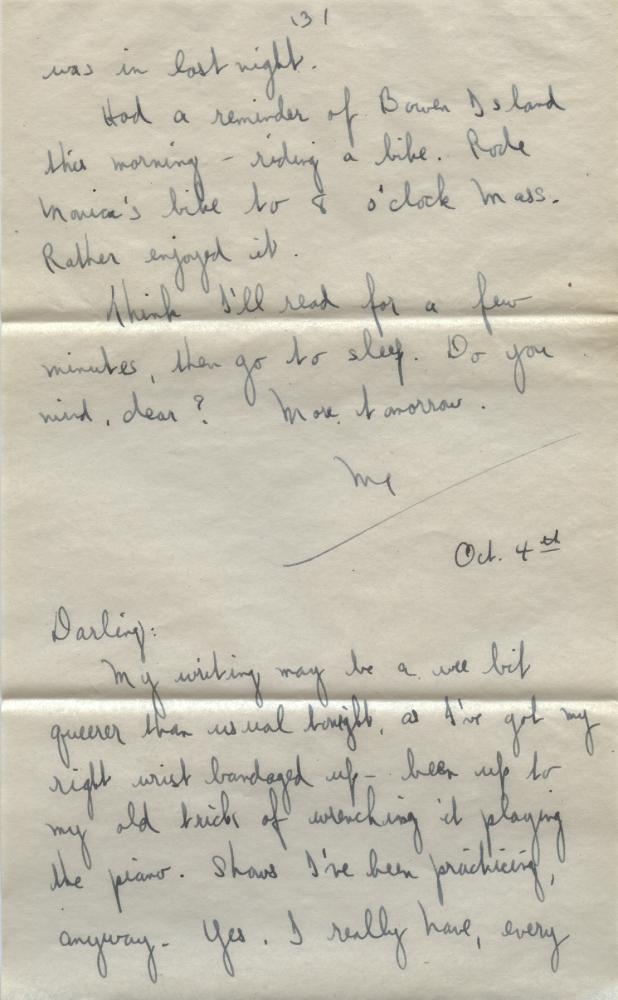 (3)
was in last night.
Had a reminder of Bowen Island
this morning - riding a bike. Rode
Monica's bike to 8 o'clock Mass.
Rather enjoyed it.
Think I'll read for a few
minutes, then go to sleep. Do you
mind, dear? More tomorrow.
Me
Oct. 4th
Darling:
My writing may be a wee bit
queerer than usual tonight, as I've got my
right wrist bandaged up - been up to
my old trick of wrenching it playing
the piano. Shows I've been practicing,
anyway. Yes, I really have, every